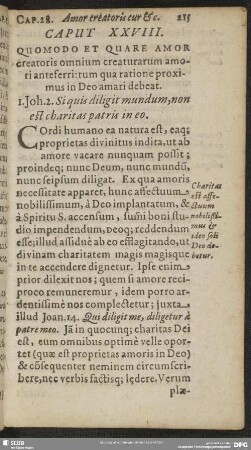 CAP. 28. Amor creatoris cur &c. 215
CAPUT XXVIII.
QUOMODO ET QUARE AMOR
creatoris omnium creaturarum amo-
ri anteferri: tum qua ratione proxi-
mus in Deo amari debeat.
1. Joh. 2. Si quis diligit mundum, non
est charitas patris in eo.
Cordi humano ea natura est, eaq;
proprietas divinitus indita, ut ab
amore vacare nunquam possit;
proindeq; nunc Deum, nunc mundũ,
nunc seipsum diligat. Ex qua amoris
necessitate apparet, hunc affectuum
nobilissimum, à Deo implantatum, &
à Spiritu S. accensum, sum̃i boni stu-
dio impendendum, deoq; reddendum
esse; illud assiduè ab eo efflagitando, ut
divinam charitatem magis magisque
in te accendere dignetur. Ipse enim
prior dilexit nos; quem si amore reci-
proco remuneremur, idem porro ar-
dentissimè nos complectetur; juxta
illud Joan. 14. Qui diligit me, diligetur à
patre meo. Jã in quocunq; charitas Dei
est, eum omnibus optimè velle opor-
tet (quæ est proprietas amoris in Deo)
& cõsequenter neminem circumscri-
bere, nec verbis factisq; lędere. Verum
plæ-
Charitas
est affe-
ctuum
nobilissi-
mus &
ideo soli
Deo de-
betur.
SLUB
DFG